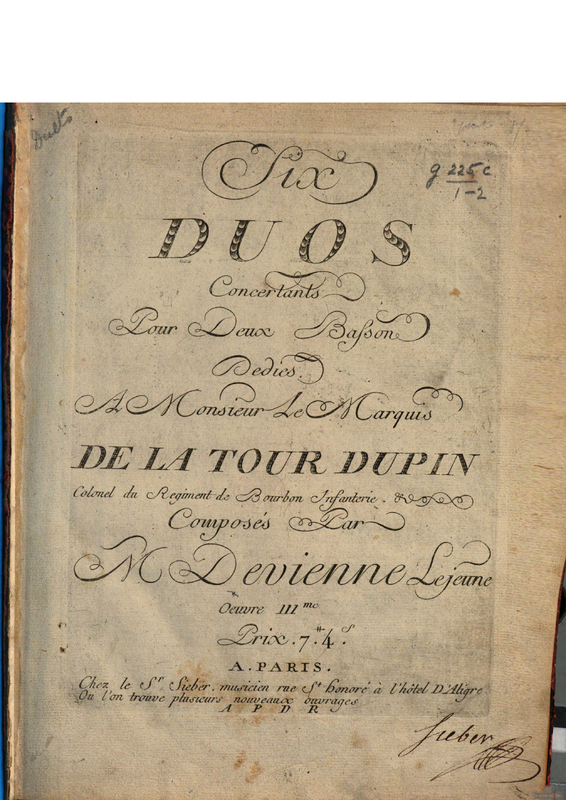 Duets
g 225 c
1-2
Six
DUOS
Concertants
Pour Deux Baſson
Dediés.
A Monsieur Le Marquis
DE LA TOUR DUPIN
Colonel du Regiment de Bourbon Infanterie.
Composés Par
M Devienne Lejeune
Oeuvre III.me
Prix. 7.# 4.s
A. PARIS.
Chez le Sr Sieber. musicien rue St honoré à l'hôtel D'Aligre
Ou l'on trouve plusieurs nouveaux ouvrages
A P D R
Sieber